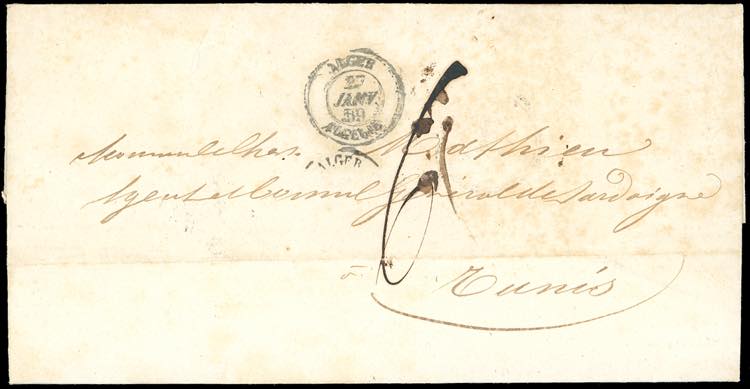 ALGER
27
JANV.
59
ALGERIE
ALGER
Mathieu
Agent et Consul Général de Sardaigne
à Tunis
6